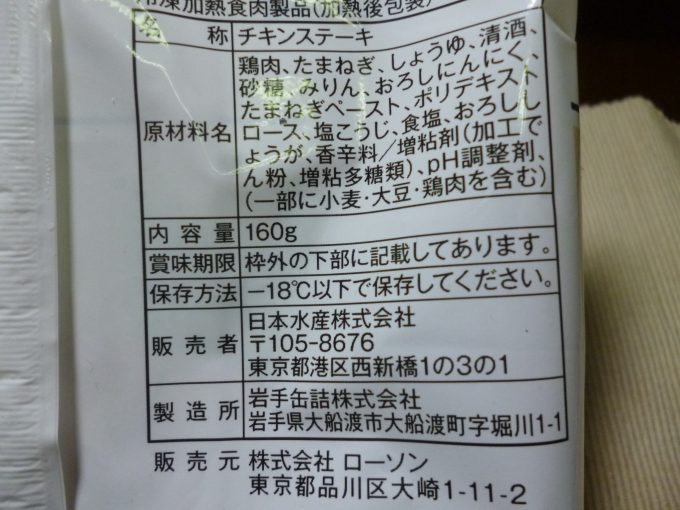 冷凍加熱食肉製品(加熱後包装)
名称 チキンステーキ
原材料名
鶏肉、たまねぎ、しょうゆ、清酒、
砂糖、みりん、おろしにんにく、
たまねぎペースト、ポリデキスト
ロース、塩こうじ、食塩、おろしし
ょうが、香辛料/増粘剤(加工で
ん粉、増粘多糖類)、pH調整剤、
(一部に小麦・大豆・鶏肉を含む)
内容量 160g
賞味期限 枠外の下部に記載してあります。
保存方法 −18℃以下で保存してください。
販売者
日本水産株式会社
〒105-8676
東京都港区西新橋1の3の1
製造所
岩手缶詰株式会社
岩手県大船渡市大船渡町字堀川1-1
販売元 株式会社 ローソン
東京都品川区大崎1-11-2